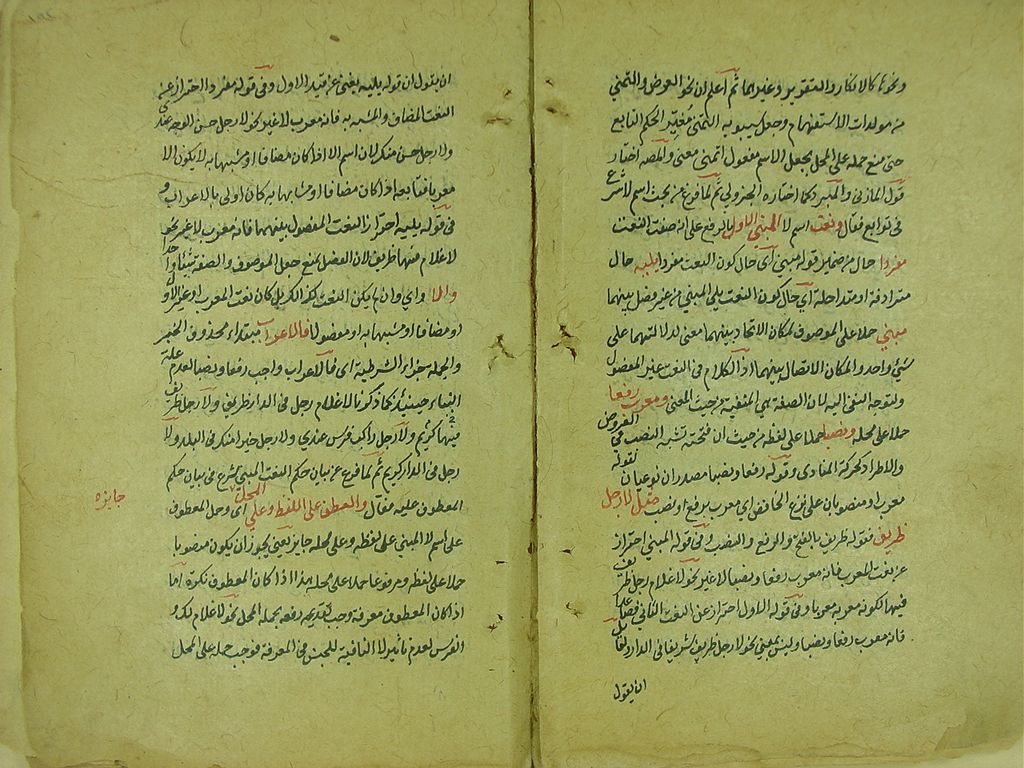 ونحوها كالانكار والتقرير وغيرهما ثم اعلم ان نحو العرض والتمني
من مولدات الاستفهام وجعل سيبويه التمني مغير الحكم التابع
حتى منع حمله على المحل بجعل الاسم مفعول اتمنى معنى والمصه اختار
قول المازني والمبرد كما اختاره الجزولي ثم لما فرغ عن بحث اسم لا شرع
في توابعه فقال ونعت اسم لا المبني الاول بالرفع على انه صفت النعت
مفردا حال من ضمير قوله مبني اي حال كون النعت مفردا يليه حال
مترادفة او متداخلة اي حال كون النعت يلي المبني من غير فصل بينهما
مبني حملا على الموصوف لمكان الاتحاد بينهما معنى لدلالتهما على
شيء واحد والمكان الاتصال بينهما اذ الكلام في النعت غير المفصول
ولتوجه النفي اليه لان الصفة هي المنفية من حيث المعنى ومعرب رفعا
حملا على محله ونصبا حملا على لفظه من حيث ان فتحته تشبه النصب في العروض
والاطراد كحركة المنادى وقوله رفعا ونصبا مصدران نوعيان لقوله
معرب او منصوبان على نزع الخافض اي معرب برفع او نصب مثل لا رجل
ظريف فقوله ظريف بالفتح والرفع والنصب وفي قوله المبني احتراز
عن نعت المعرب فانه معرب رفعا ونصبا لا غير نحو لا غلام رجل ظريف
فيها لكونه معربه معربا وفي قوله الاول احتراز عن النعت الثاني فصاعدا
فانه معرب رفعا ونصبا وليس بمبني نحو لا رجل ظريف شريفا في الدار
ان يقول
ان يقول ان قوله يليه يغني عن قيد الاول وفي قوله مفردا احتراز عن
النعت المضاف والمشبه به فانه معرب لا غير نحو لا رجل حسن الوجه عندي
ولا رجل حسن لان اسم لا اذا كان مضافا او مشبها به لا يكون الا
معربا فتابعه اذا كان مضافا او مشابها به كان اولى بالاعراب و
في قوله يليه احتراز النعت المفصول بينهما فانه معرب لا غير نحو
لا غلام فيها ظريف لان الفصل يمنع جعل الموصوف والصفة شيئا واحدا
والا اي وان لم يكن النعت كذلك بل كان نعت المعرب او غير الاول
او مضافا او مشبها به او مفصولا فالاعراب مبتداء محذوف الخبر
والجملة جزاء الشرطية اى فالاعراب واجب رفعا ونصبا لعدم علة
البناء حينئذ كما ذكرنا لا غلام رجل في الدار ظريف ولا رجل ظريف
فيها كريم ولا رجل راكب فرس عندي ولا رجل خيرا منك في البلد ولا
رجل في الدار كريم ثم لما فرغ عن بيان حكم النعت المبني شرع في بيان حكم
المعطوف عليه فقال والعطف على اللفظ وعلى المحل اي وحل المعطوف
جايزه
على اسم لا المبني على لفظه وعلى محله جايز يعني يجوز ان يكون منصوبا
حملا على لفظه ومرفوعا حملا على محله هذا اذا كان المعطوف نكرة اما
اذا كان المعطوف معرفة وجب رفعه بحمله المحل نحو لا غلام لك و
الفرس لعدم تأثير لا النافية للجنس في المعرفة فوجب حمله على المحل